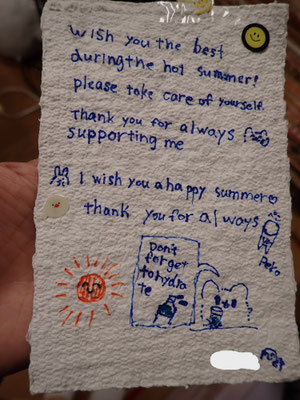 Wish you the best
during the hot summer!
please take care of yourself.
Thank you for always
supporting me
I wish you a happy summer
thank you for always
Don't
forget
to hydra
te
Peko